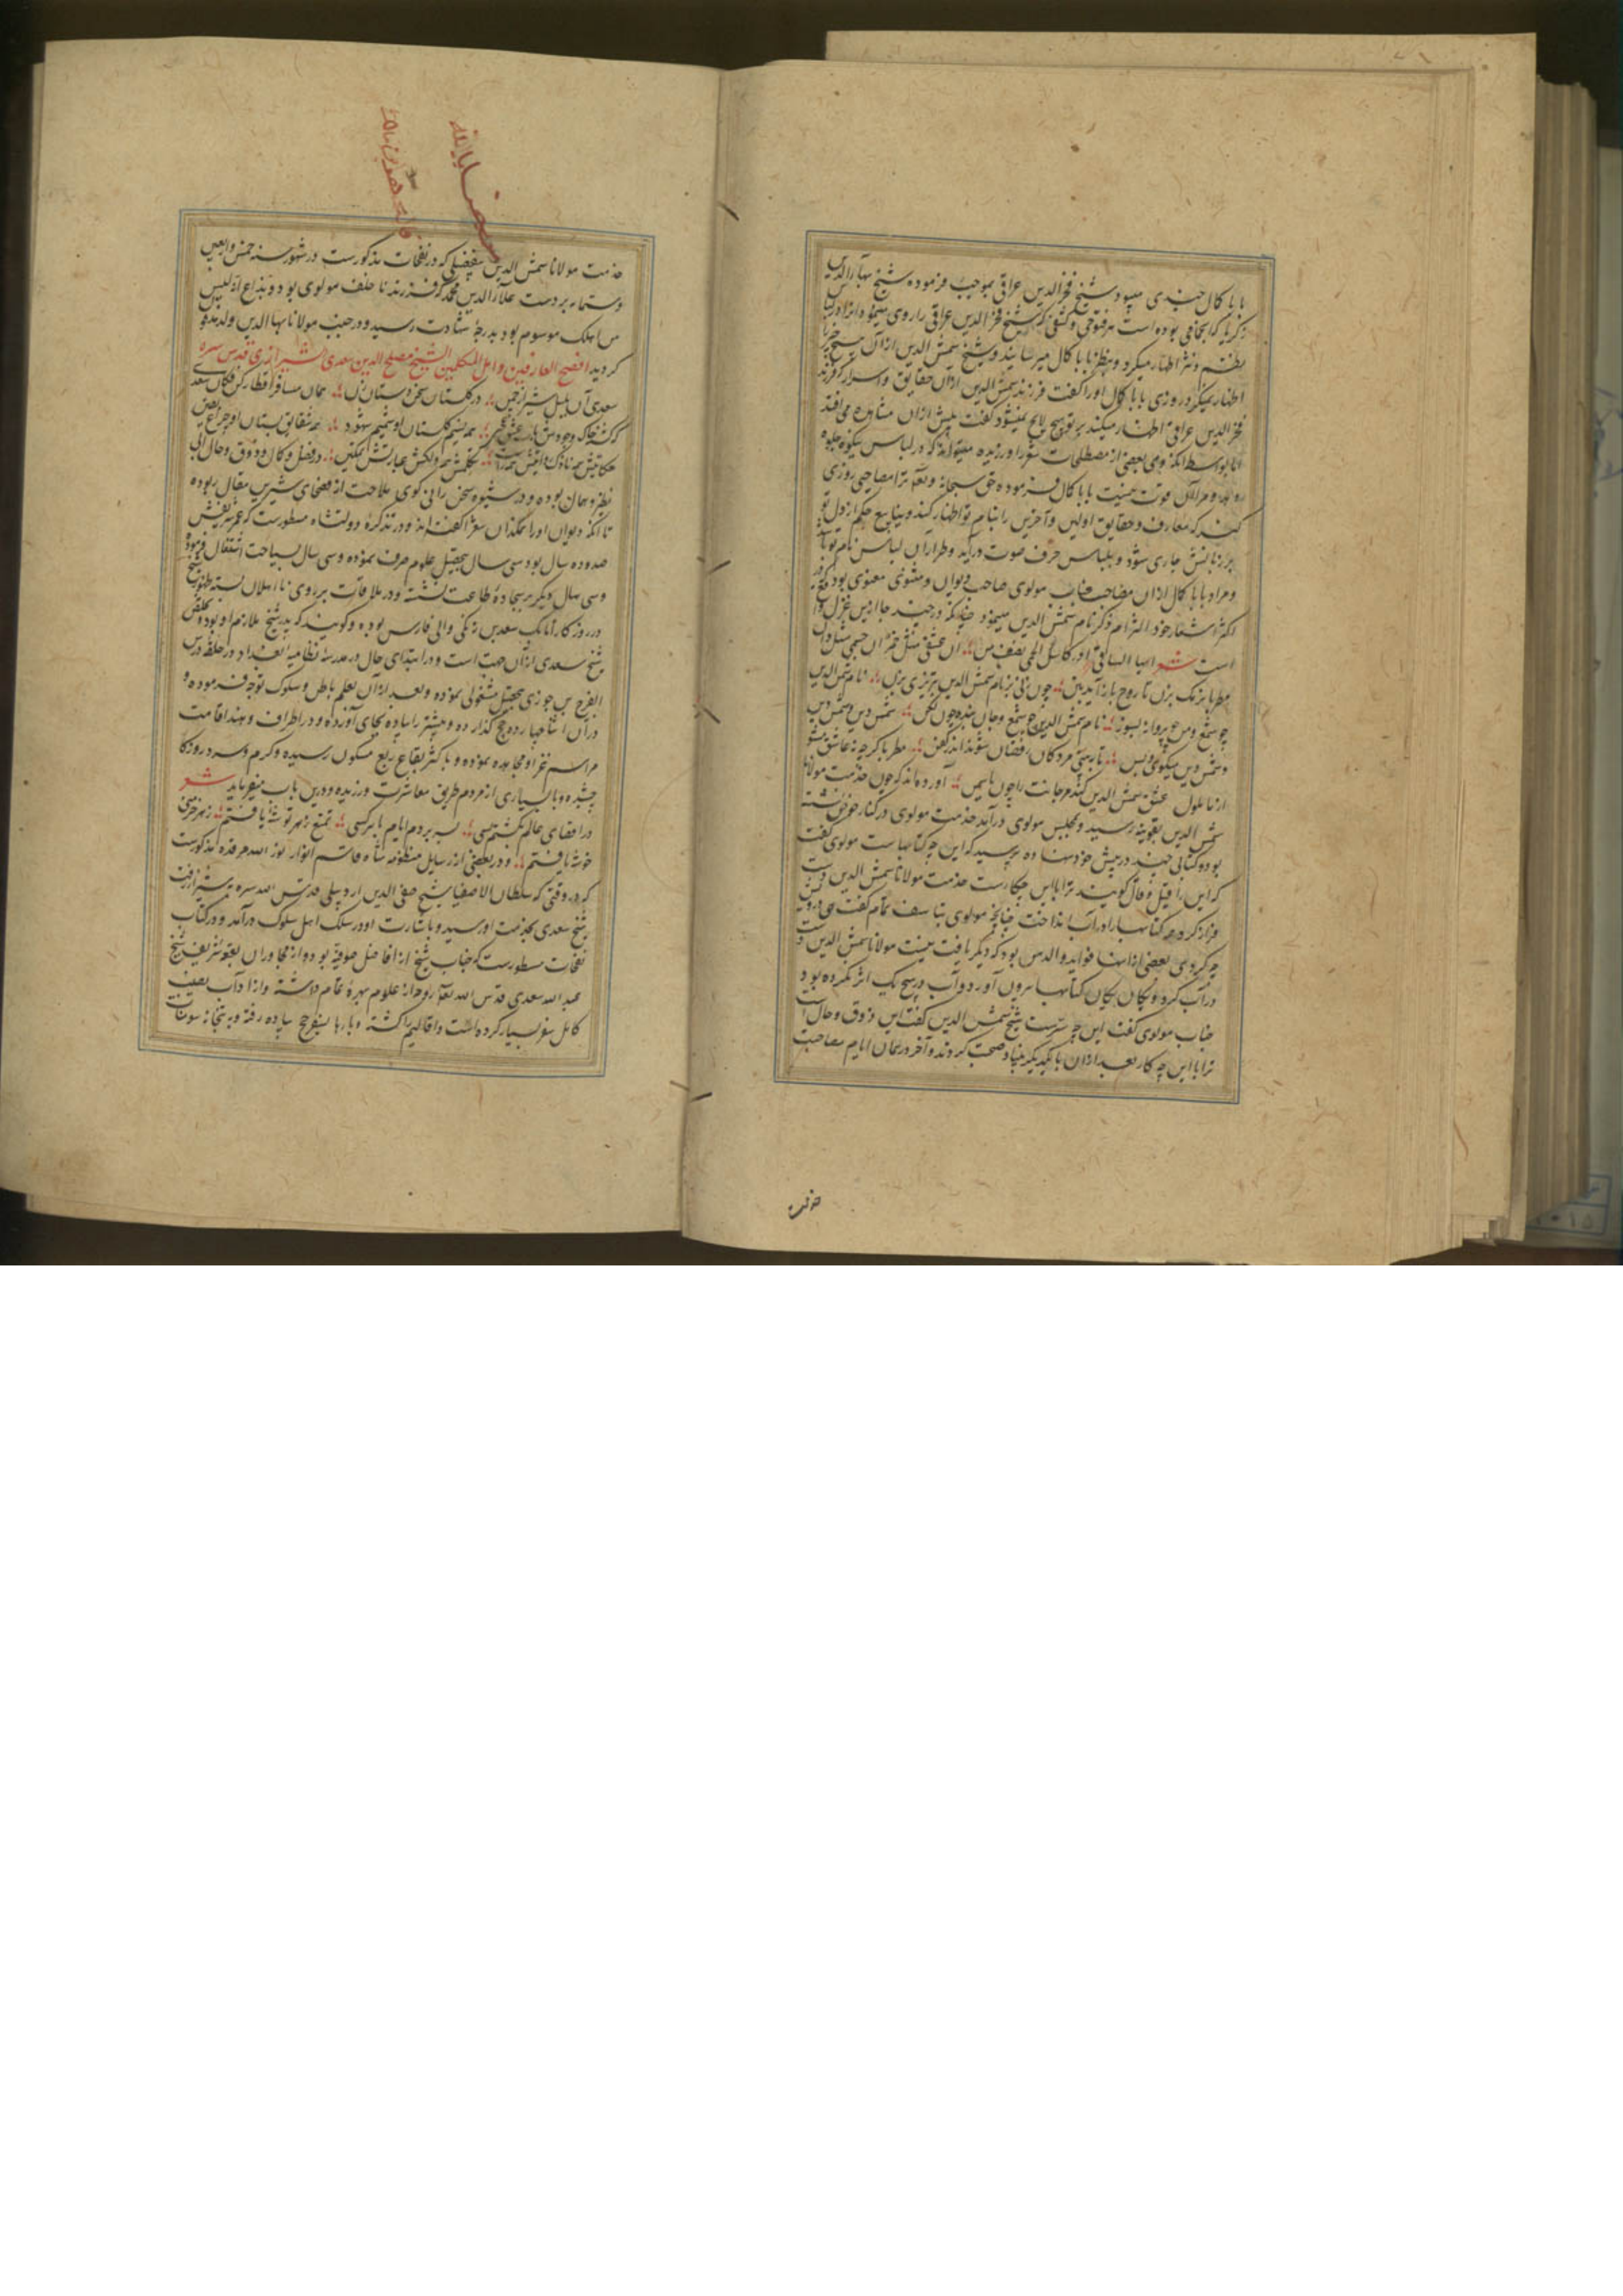 بابا کمال جندی میبود شیخ فخرالدین عراقی بموجب فرموده شیخ بهاءالدین
زکریا که آنجا می بوده است هر فتوحی و کشفی که شیخ فخرالدین عراقی را روی مینموده آنرا در لباس
نظم و نثر اظهار میکرد و بنظر بابا کمال میرسانید و شیخ شمس الدین از آن هیچ چیز را
اظهار نمیکرد روزی بابا کمال او را گفت فرزند شمس الدین از آن حقایق و اسرار که فرزند
فخرالدین عراقی اظهار میکند بر تو هیچ لایح نمیشود گفت بیش از آن مشاهده می افتد
اما بواسطه آنکه وی بعضی از مصطلحات شعر را ورزیده میتواند که در لباس نیکو جلوه
دهد و مرا آن قوت نیست بابا کمال فرموده حق سبحانه و تعالی ترا مصاحبی روزی
کند که معارف و حقایق اولین و آخرین را بنام تو اظهار کند و ینابیع حکم از دل تو
بر زبانش جاری شود و بلباس حرف صوت درآید و طراز آن لباس نام تو باشد
و مراد بابا کمال از آن مصاحب جناب مولوی صاحب دیوان و مثنوی معنوی بود که در
اکثر اشعار خود التزام ذکر نام شمس الدین مینمود چنانکه در چند جا ازین غزل واقع
است شعر
مطربا نرمک بزن تا روح باز آید بتن ؛ چون زنی بر نام شمس الدین تبریزی بزن ؛ نام شمس الدین
چو شمع و من چو پروانه بسوز ؛ نام شمس الدین چو شمع و جان بنده چون لگن ؛ شمس دین و شمس دین
و شمس دین میگوی و بس ؛ تا ببینی مردگان رقصان شوند اندر کفن ؛ مطربا گرچه نه عاشق مشو
از ما ملول عشق شمس الدین کند مر جانت را چون یاسمن ؛ آورده اند که چون خدمت مولانا
شمس الدین بقونیه رسید و بمجلس مولوی درآمد خدمت مولوی در کنار حوض نشسته
بود و کتابی چند در پیش خود نهاده پرسید که این چه کتابهاست مولوی گفت
که این را قیل و قال گویند ترا با این چکارست خدمت مولانا شمس الدین دست
فراز کرد و همه کتابها را در آب انداخت چنانچه مولوی بتأسف تمام گفت هی درویش
چه کردی بعضی از اینها فواید والد من بود که دیگر یافت نیست مولانا شمس الدین دست
در آب کرد و یکان یکان کتابها بیرون آورد و آب در هیچ یک اثر نکرده بود
جناب مولوی گفت این چه سرست شیخ شمس الدین گفت این ذوق و حال است
ترا با این چه کار بعد از آن با یکدیگر بنیاد صحبت کردند و آخر در همان ایام مصاحبت
خدمت
خدمت مولانا شمس الدین بتفصیلی که در نفحات مذکورست در شهور سنه خمس و اربعین
و ستمایه بر دست علاءالدین محمد که فرزند نا خلف مولوی بود و بداغ انه لیس
من اهلک موسوم بود بدرجه شهادت رسید و در جنب مولانا بهاالدین ولد مدفون
گردید افصح العارفین و امل المتکلمین الشیخ مصلح الدین سعدی الشیرازی قدس سره
سعدی آن بلبل شیراز چمن ؛ در گلستان سخن دستان زن ؛
همه نسیم گلستان او شمیم شهود ؛ همه شقایق بستان او چراغ یقین
در فضل و کمال و ذوق و حال بی
نظیر و همال بوده و در شیوه سخن رانی گوی ملاحت از فصحای شیرین مقال ربوده
تا آنکه دیوان او را نمکدان شعر گفته اند و در تذکره دولتشاه مسطورست که عمر شریفش
صد و ده سال بود سی سال بتحصیل علوم صرف نموده و سی سال بسیاحت اشتغال فرموده
و سی سال دیگر بر سجاده طاعت نشسته و در ملاقات بر روی نااهلان بسته ظهور شیخ
در روزگار اتابک سعد بن زنگی والی فارس بوده و گویند که پدر شیخ ملازم او بود و تخلص
شیخ سعدی از آن جهت است و در ابتدای حال در مدرسه نظامیه بغداد در حلقه درس
ابوالفرج بن جوزی بتحصیل مشغولی نموده و بعد از آن بعلم باطن و سلوک توجه فرموده و
در آن اثنا چهارده حج گذارده و بیشتر را پیاده بجای آورده و در اطراف و هند اقامت
مراسم غزا و مجاهده نموده و باکثر بقاع ربع مسکون رسیده و گرم و سرد روزگار
چشیده و با بسیاری از مردم طریق معاشرت ورزیده و درین باب میفرماید شعر
در اقصای عالم بگشتم بسی ؛ بسر بردم ایام با هر کسی ؛ تمتع ز هر گوشه یافتم ؛ ز هر خرمنی
خوشه یافتم ؛ و در بعضی از رسایل منظومه شاه قاسم انوار نور الله مرقده مذکورست
که در وقتی که سلطان الاصفیا شیخ صفی الدین اردبیلی قدس الله سره بشیراز رفت
شیخ سعدی بخدمت او رسید و باشارت او در سلک اهل سلوک درآمد و در کتاب
نفحات مسطورست که جناب شیخ از افاضل صوفیه بود و از مجاوران بقعه شریف شیخ
عبدالله سعدی قدس الله تعالی روحه از علوم بهره تمام داشته و از آداب نصیب
کامل سفر بسیار کرده است و اقالیم را گشته و بارها بسفر حج پیاده رفته و به بتخانه سومنات